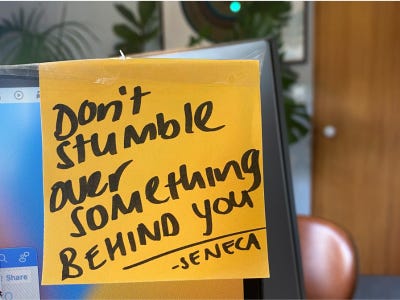 Don't
stumble
over
something
BEHIND you
-SENECA
Share